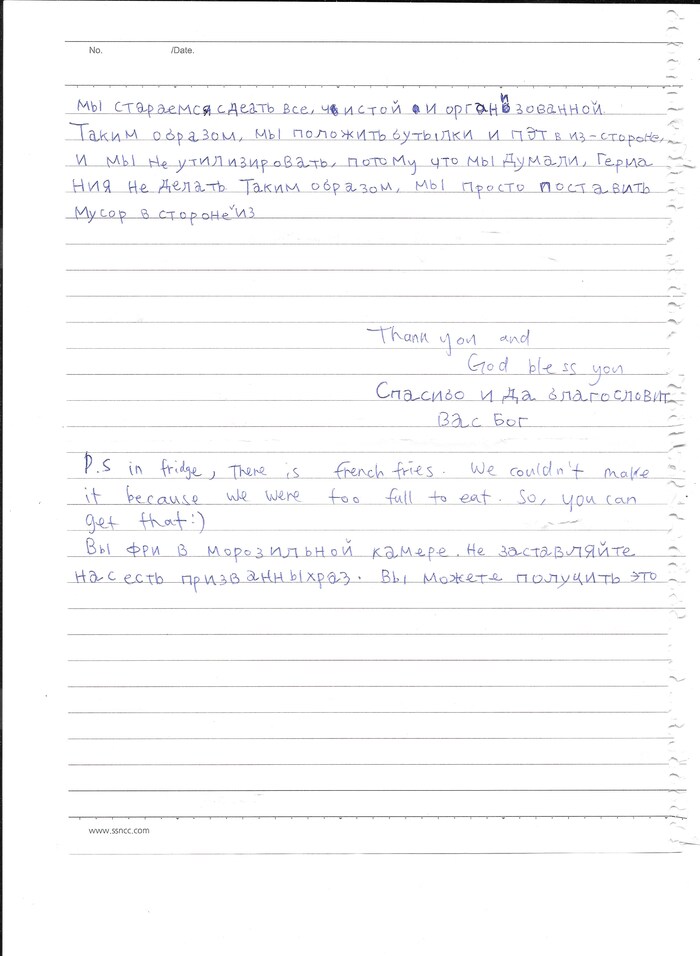 No. /Date.
мы стараемся сдеать все, чистой и организованной.
Таким образом, мы положить бутылки и пэт в из-стороне,
и мы не утилизировать, потому что мы думали, Герма
ния не делать Таким образом, мы просто поставить
мусор в стороне из
Thank you and
God bless you
Спасибо и да благословит
Вас Бог
P.S in fridge, There is french fries. We couldn't make
it because we were too full to eat. So, you can
get that:)
Вы фри в морозильной камере. Не заставляйте
нас есть призванныхраз. Вы можете получить это
www.ssncc.com